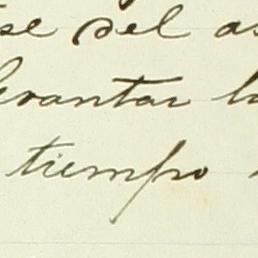 se del as
levantar la
tiempo